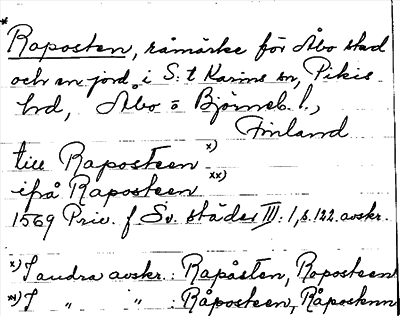 *
Raposten, råmärke för Åbo stad
och en jord i S:t Karins sn, Pikis
hd, Åbo o Björneb. l.,
Finland
till Raposteen x)
ifrå Raposteen xx)
1569 Priv. f Sv. städer III: 1, s. 122. avskr.
x) I andra avskr.: Rapåsten, Raposteen
xx) I " " : Råposteen, Råpostenn